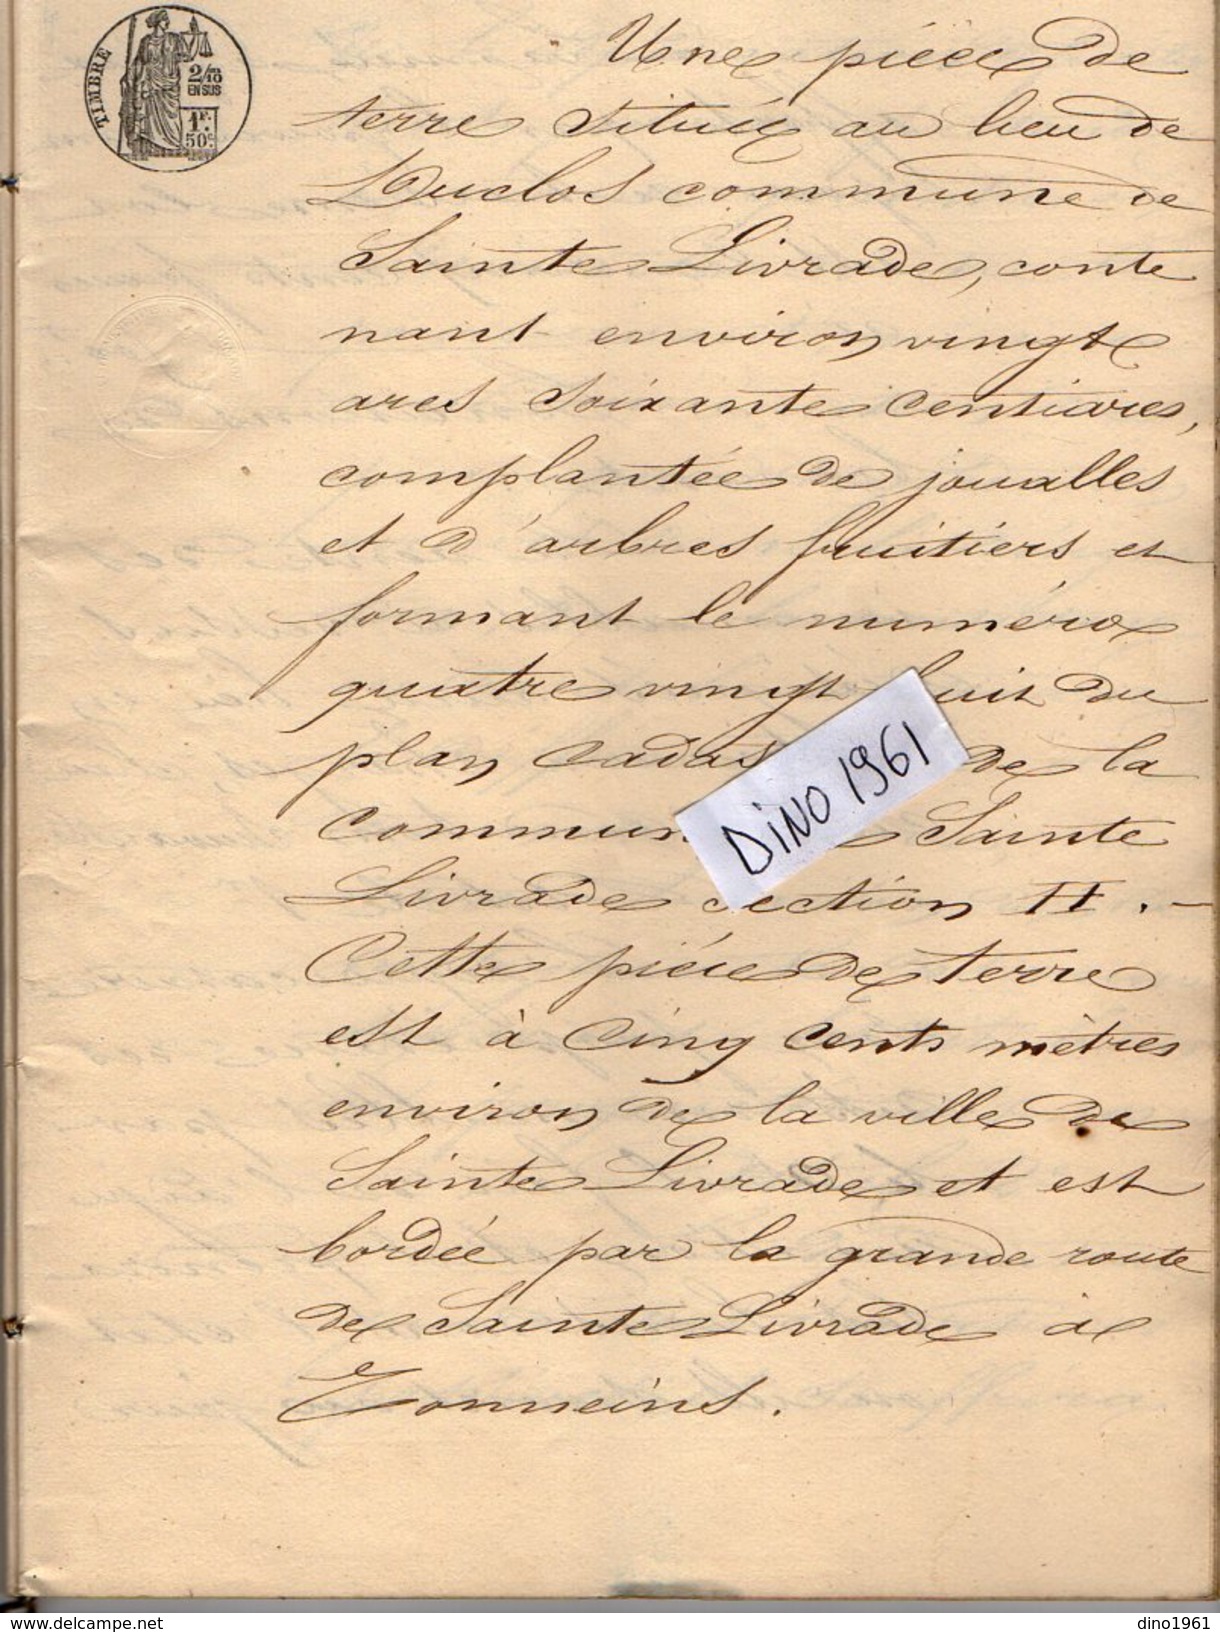 TIMBRE
2/10
EN SUS
1F.
50c.
Une pièce de
terre située au lieu de
Duclos commune de
Sainte Livrade, conte
nant environ vingt
ares soixante centiares,
complantée de joualles
et d'arbres fruitiers et
formant le numéro
quatre vingt huit du
plan cadas de la
commun Sainte
Livrade section H. –
Cette pièce de terre
est à cinq cents mètres
environ de la ville de
Sainte Livrade et est
bordée par la grande route
de Sainte Livrade à
Tonneins.
DINO 1961
dino1961